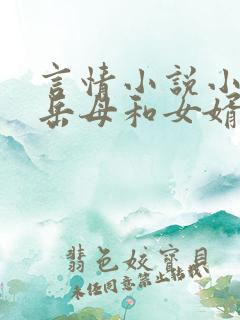 言情小說小
岳母和女婿
翡色姣寶貝
未经同意禁止转载